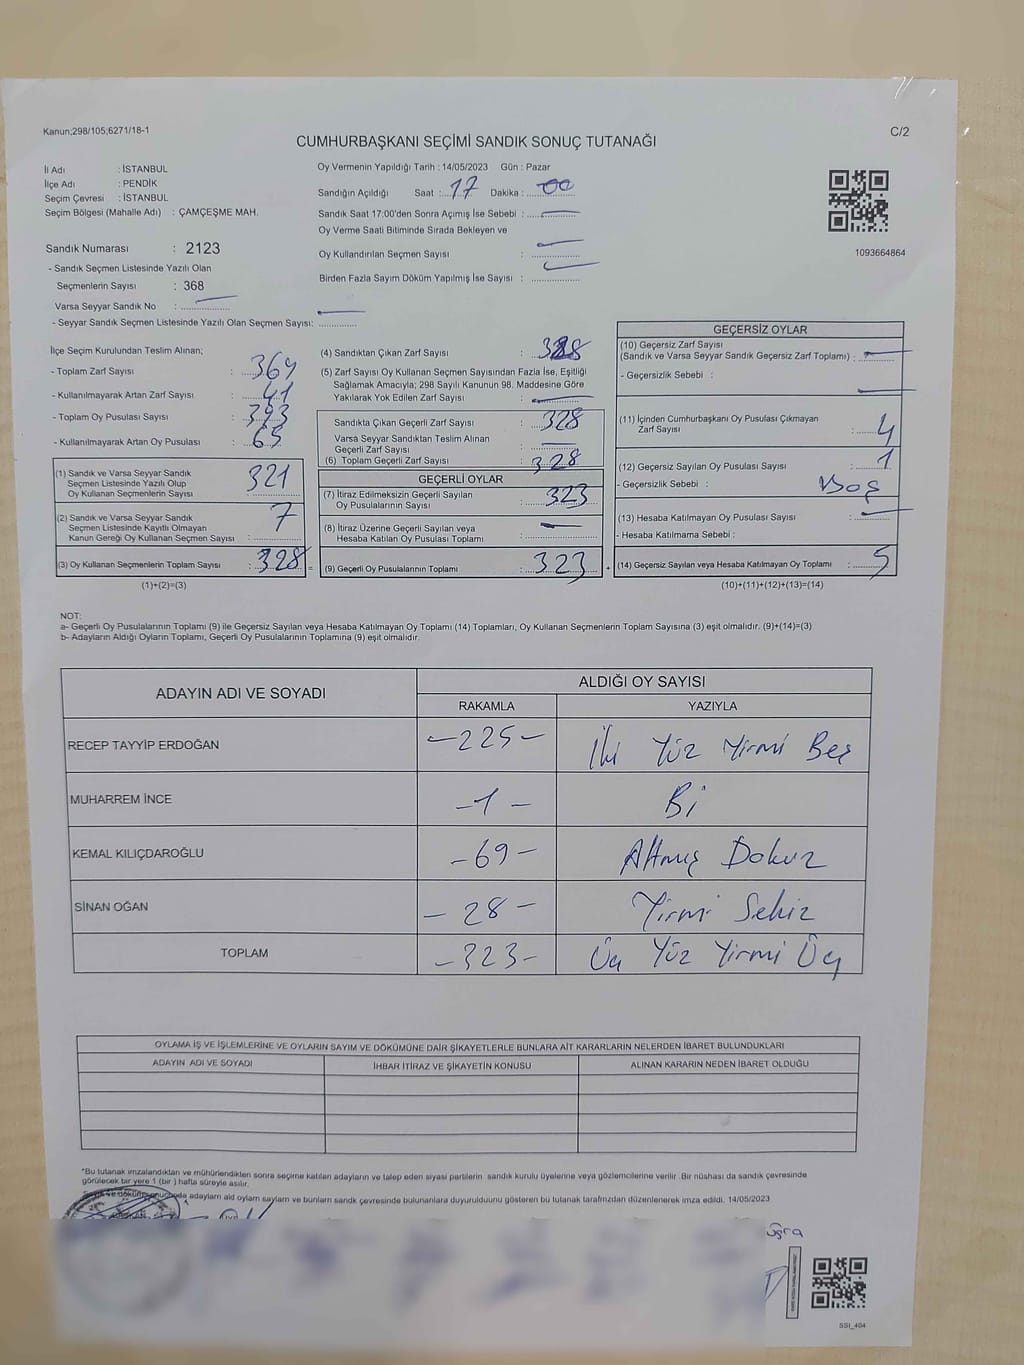 Kanun;298/105;6271/18-1
C/2
CUMHURBAŞKANI SEÇİMİ SANDIK SONUÇ TUTANAĞI
İl Adı : İSTANBUL
İlçe Adı : PENDİK
Seçim Çevresi : İSTANBUL
Seçim Bölgesi (Mahalle Adı) : ÇAMÇEŞME MAH.
Sandık Numarası : 2123
- Sandık Seçmen Listesinde Yazılı Olan
Seçmenlerin Sayısı : 368
Varsa Seyyar Sandık No :
- Seyyar Sandık Seçmen Listesinde Yazılı Olan Seçmen Sayısı:
Oy Vermenin Yapıldığı Tarih : 14/05/2023 Gün : Pazar
Sandığın Açıldığı Saat : 17 Dakika : 00
Sandık Saat 17:00'den Sonra Açımış İse Sebebi :
Oy Verme Saati Bitiminde Sırada Bekleyen ve
Oy Kullandırılan Seçmen Sayısı :
Birden Fazla Sayım Döküm Yapılmış İse Sayısı :
1093664864
İlçe Seçim Kurulundan Teslim Alınan;
- Toplam Zarf Sayısı : 369
- Kullanılmayarak Artan Zarf Sayısı : 41
- Toplam Oy Pusulası Sayısı : 393
- Kullanılmayarak Artan Oy Pusulası : 65
(1) Sandık ve Varsa Seyyar Sandık
Seçmen Listesinde Yazılı Olup
Oy Kullanan Seçmenlerin Sayısı : 321
(2) Sandık ve Varsa Seyyar Sandık
Seçmen Listesinde Kayıtlı Olmayan
Kanun Gereği Oy Kullanan Seçmen Sayısı : 7
(3) Oy Kullanan Seçmenlerin Toplam Sayısı : 328 =
(1)+(2)=(3)
(4) Sandıktan Çıkan Zarf Sayısı : 328
(5) Zarf Sayısı Oy Kullanan Seçmen Sayısından Fazla İse, Eşitliği
Sağlamak Amacıyla; 298 Sayılı Kanunun 98. Maddesine Göre
Yakılarak Yok Edilen Zarf Sayısı :
Sandıkta Çıkan Geçerli Zarf Sayısı : 328
Varsa Seyyar Sandıktan Teslim Alınan
Geçerli Zarf Sayısı :
(6) Toplam Geçerli Zarf Sayısı : 328
GEÇERLİ OYLAR
(7) İtiraz Edilmeksizin Geçerli Sayılan
Oy Pusulalarının Sayısı : 323
(8) İtiraz Üzerine Geçerli Sayılan veya
Hesaba Katılan Oy Pusulası Toplamı :
(9) Geçerli Oy Pusulalarının Toplamı : 323 +
GEÇERSİZ OYLAR
(10) Geçersiz Zarf Sayısı
(Sandık ve Varsa Seyyar Sandık Geçersiz Zarf Toplamı) :
- Geçersizlik Sebebi :
(11) İçinden Cumhurbaşkanı Oy Pusulası Çıkmayan
Zarf Sayısı : 4
(12) Geçersiz Sayılan Oy Pusulası Sayısı : 1
- Geçersizlik Sebebi : Boş
(13) Hesaba Katılmayan Oy Pusulası Sayısı :
- Hesaba Katılmama Sebebi :
(14) Geçersiz Sayılan veya Hesaba Katılmayan Oy Toplamı : 5
(10)+(11)+(12)+(13)=(14)
NOT:
a- Geçerli Oy Pusulalarının Toplamı (9) ile Geçersiz Sayılan veya Hesaba Katılmayan Oy Toplamı (14) Toplamları, Oy Kullanan Seçmenlerin Toplam Sayısına (3) eşit olmalıdır. (9)+(14)=(3)
b- Adayların Aldığı Oyların Toplamı, Geçerli Oy Pusulalarının Toplamına (9) eşit olmalıdır.
ADAYIN ADI VE SOYADI
ALDIĞI OY SAYISI
RAKAMLA YAZIYLA
RECEP TAYYİP ERDOĞAN -225- İki Yüz Yirmi Beş
MUHARREM İNCE -1- Bi
KEMAL KILIÇDAROĞLU -69- Altmış Dokuz
SİNAN OĞAN -28- Yirmi Sekiz
TOPLAM -323- Üç Yüz Yirmi Üç
OYLAMA İŞ VE İŞLEMLERİNE VE OYLARIN SAYIM VE DÖKÜMÜNE DAİR ŞİKAYETLERLE BUNLARA AİT KARARLARIN NELERDEN İBARET BULUNDUKLARI
ADAYIN ADI VE SOYADI İHBAR İTİRAZ VE ŞİKAYETİN KONUSU ALINAN KARARIN NEDEN İBARET OLDUĞU
*Bu tutanak imzalandıktan ve mühürlendikten sonra seçime katılan adayların ve talep eden siyasi partilerin sandık kurulu üyelerine veya gözlemcilerine verilir .Bir nüshası da sandık çevresinde
görülecek bir yere 1 (bir ) hafta süreyle asılır.
adayların aid oyların sayların ve bunların sandık çevresinde bulunanlara duyurulduunu gösteren bu tutanak tarafınzdan düzenlenerek imza edildi. 14/05/2023
SSI_404